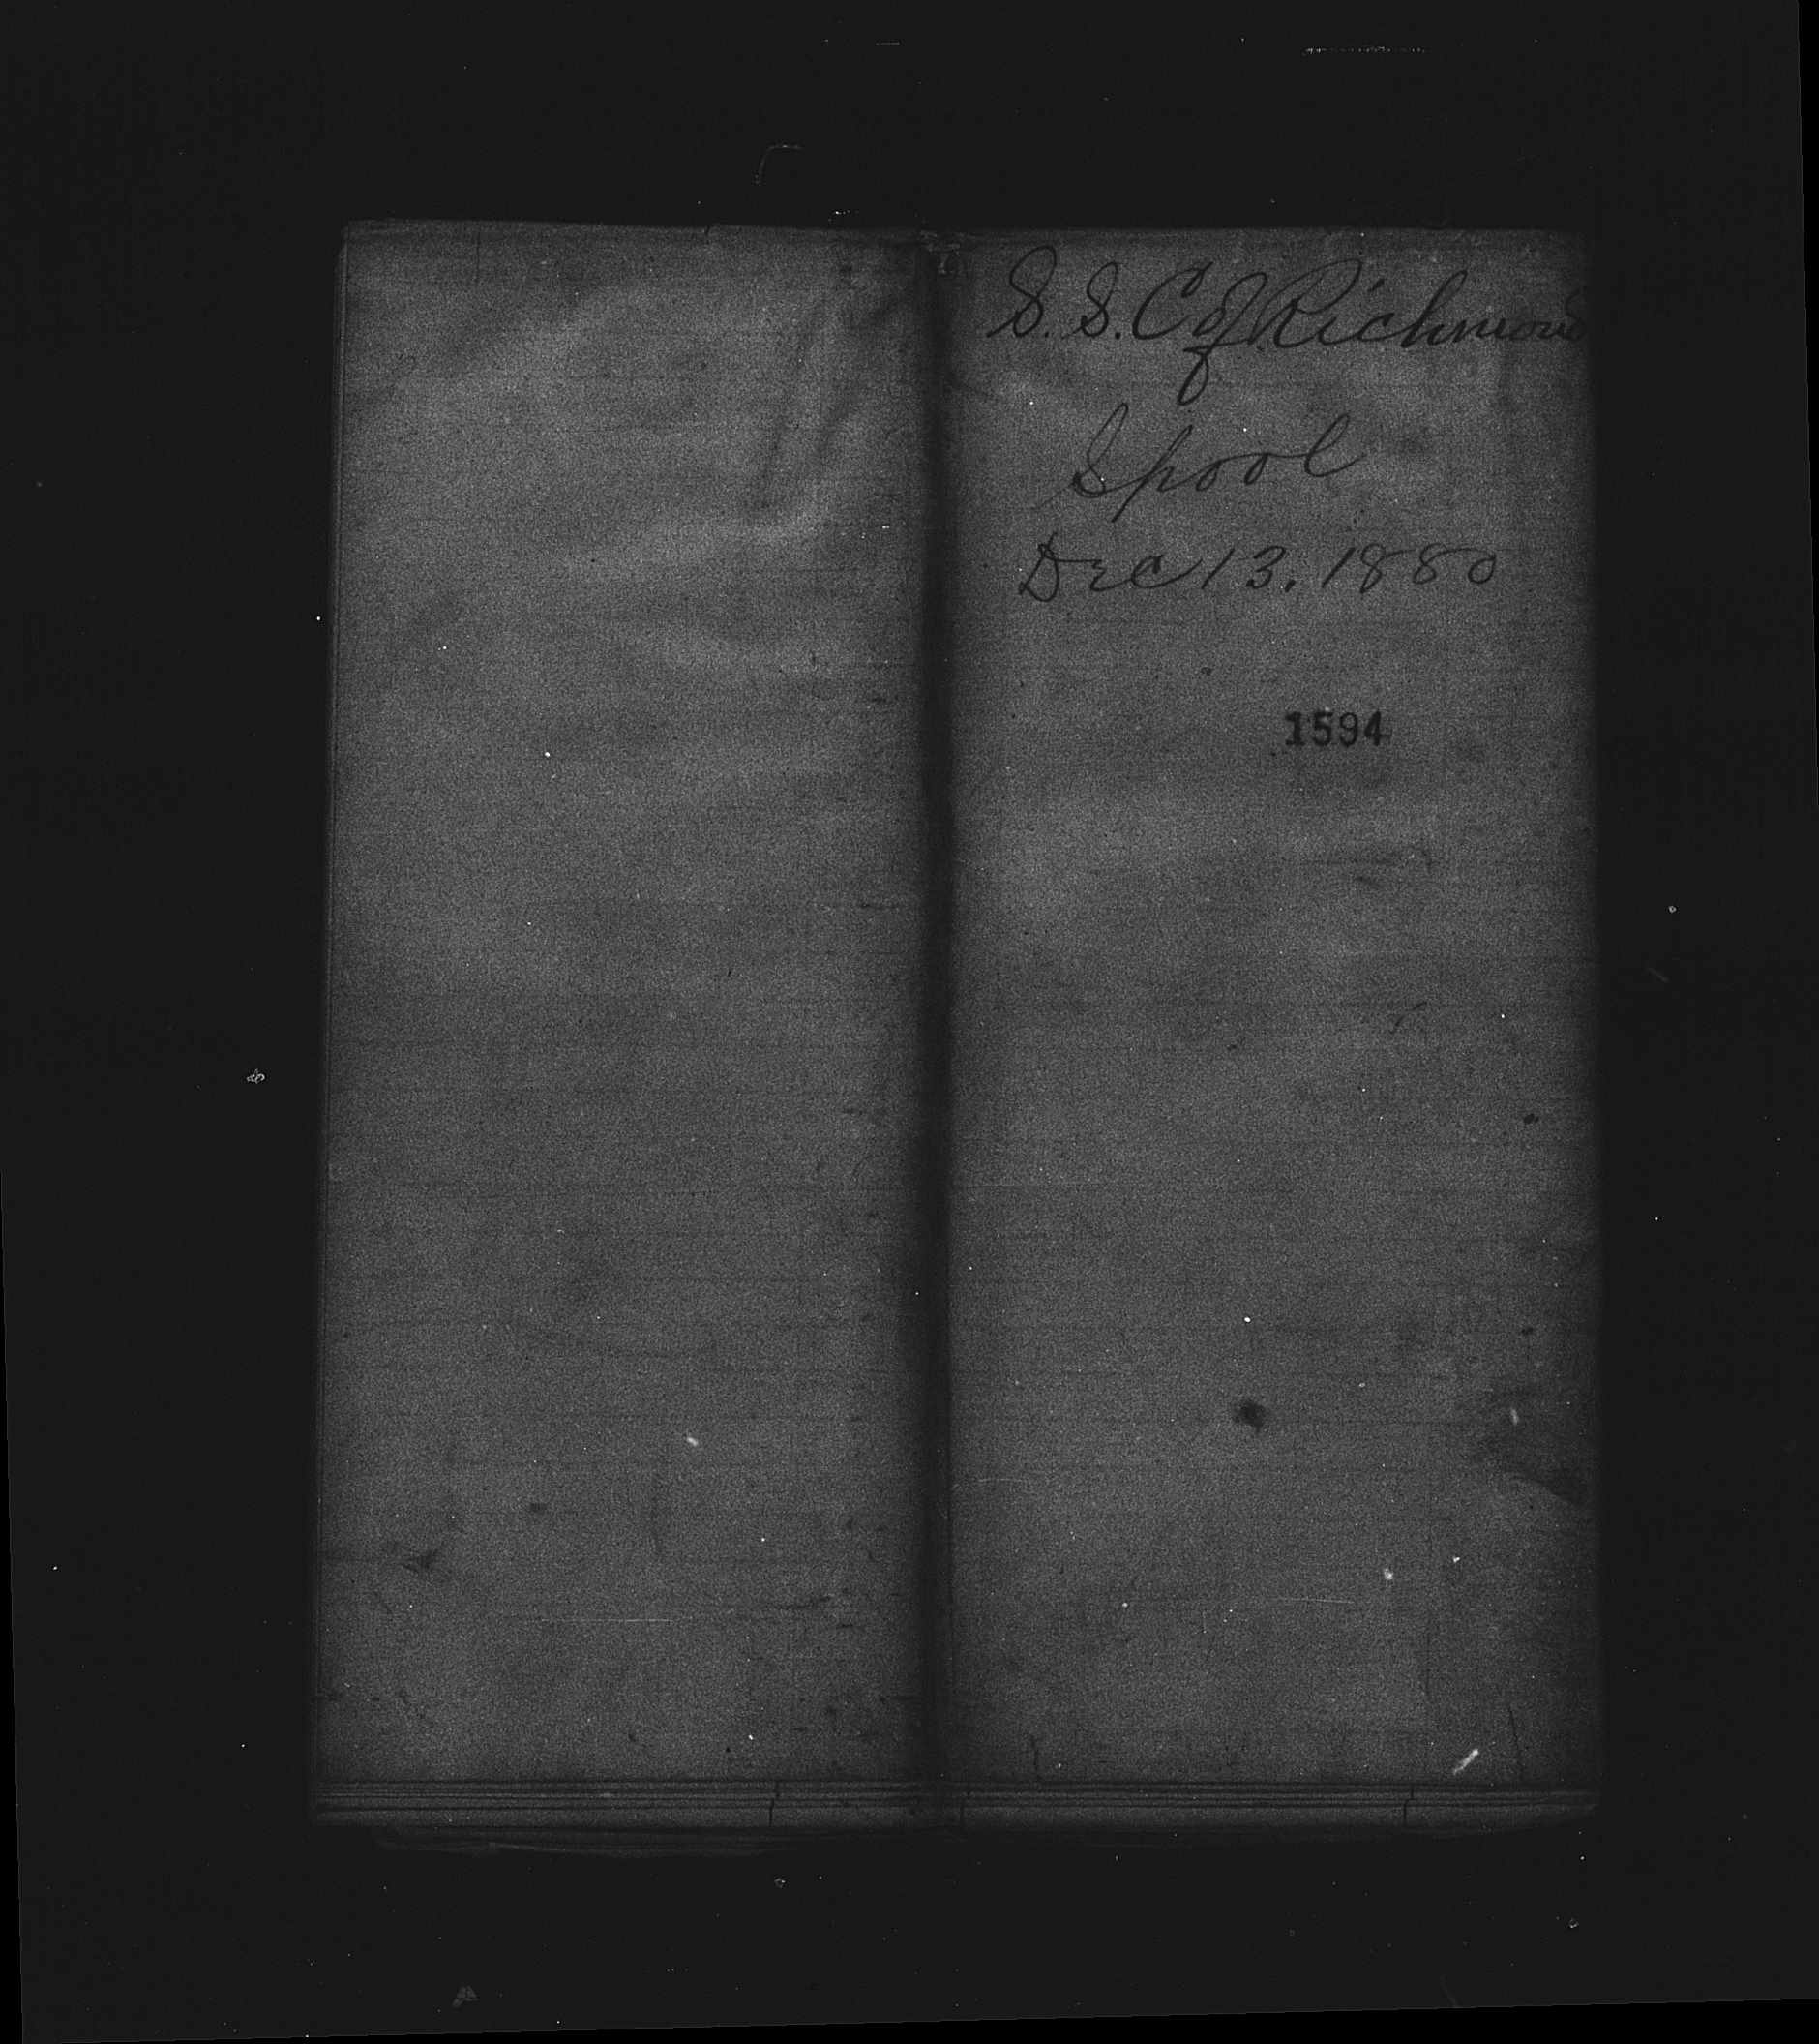 S. S. C of Richmond
Spool
Dec 13, 1880
1594